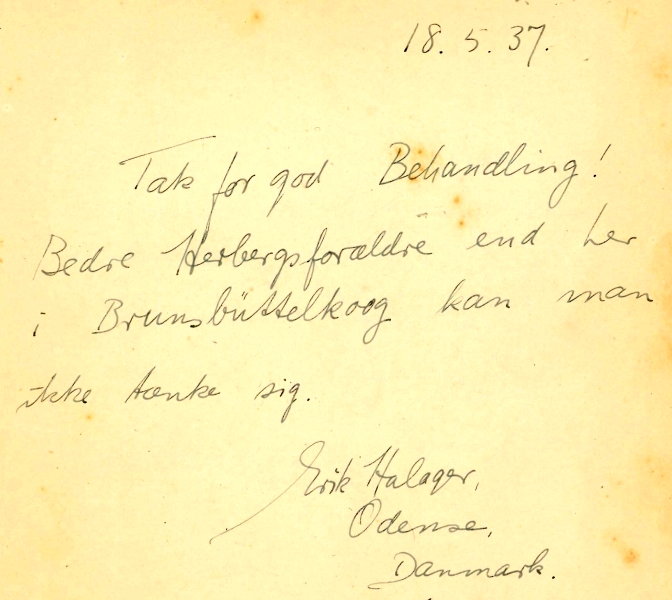 18. 5. 37.
Tak for god Behandling!
Bedre Herbergsforældre end her
i Brunsbüttelkoog kan man
ikke tænke sig.
Erik Halager,
Odense,
Danmark.